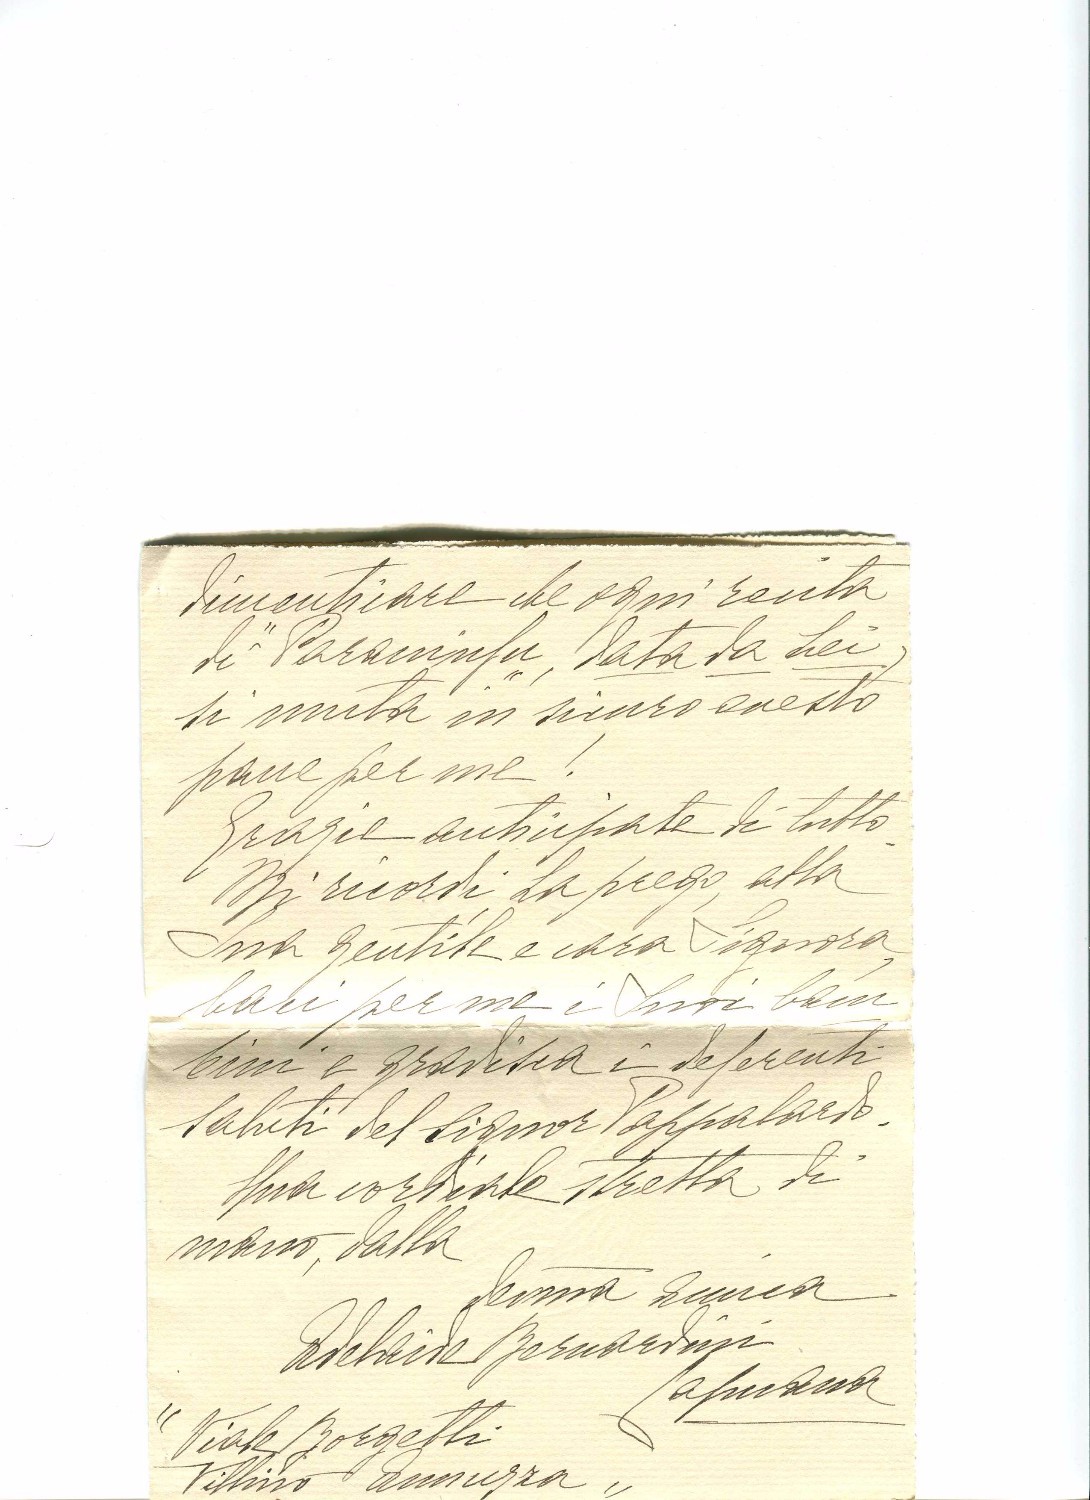 dimenticare che ogni recita
di "Paraninfu", data da Lei,
si muta in sicuro onesto
pane per me!
Grazie anticipate di tutto.
Mi ricordi, La prego, alla
Sua gentile e cara Signora,
baci per me i Suoi bam
bini e gradisca i deferenti
saluti del signor Pappalardo.
Una cordiale stretta di
mano, dalla
devma amica
Adelaide Bernardini
Capuana
"Viale Borgetti
Villino